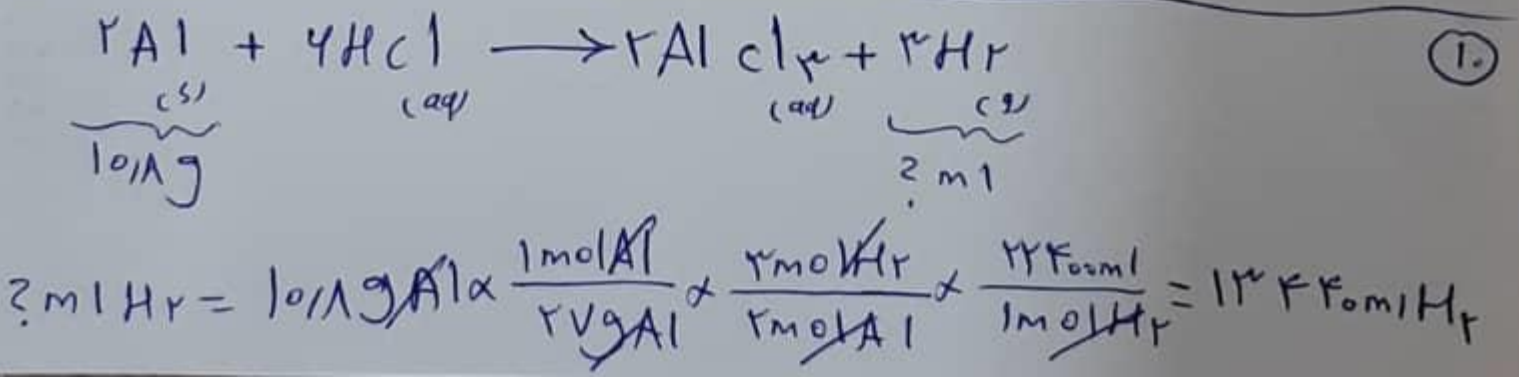 ۲Al + ۶HCl → ۲AlCl۳ + ۳H۲ ۱۰
(s) (aq) (aq) (g)
۱۰/۸g ? ml
? ml H۲ = ۱۰/۸gAl × ۱molAl/۲۷gAl × ۳molH۲/۲molAl × ۲۲۴۰۰ml/۱molH۲ = ۱۳۴۴۰mlH۲